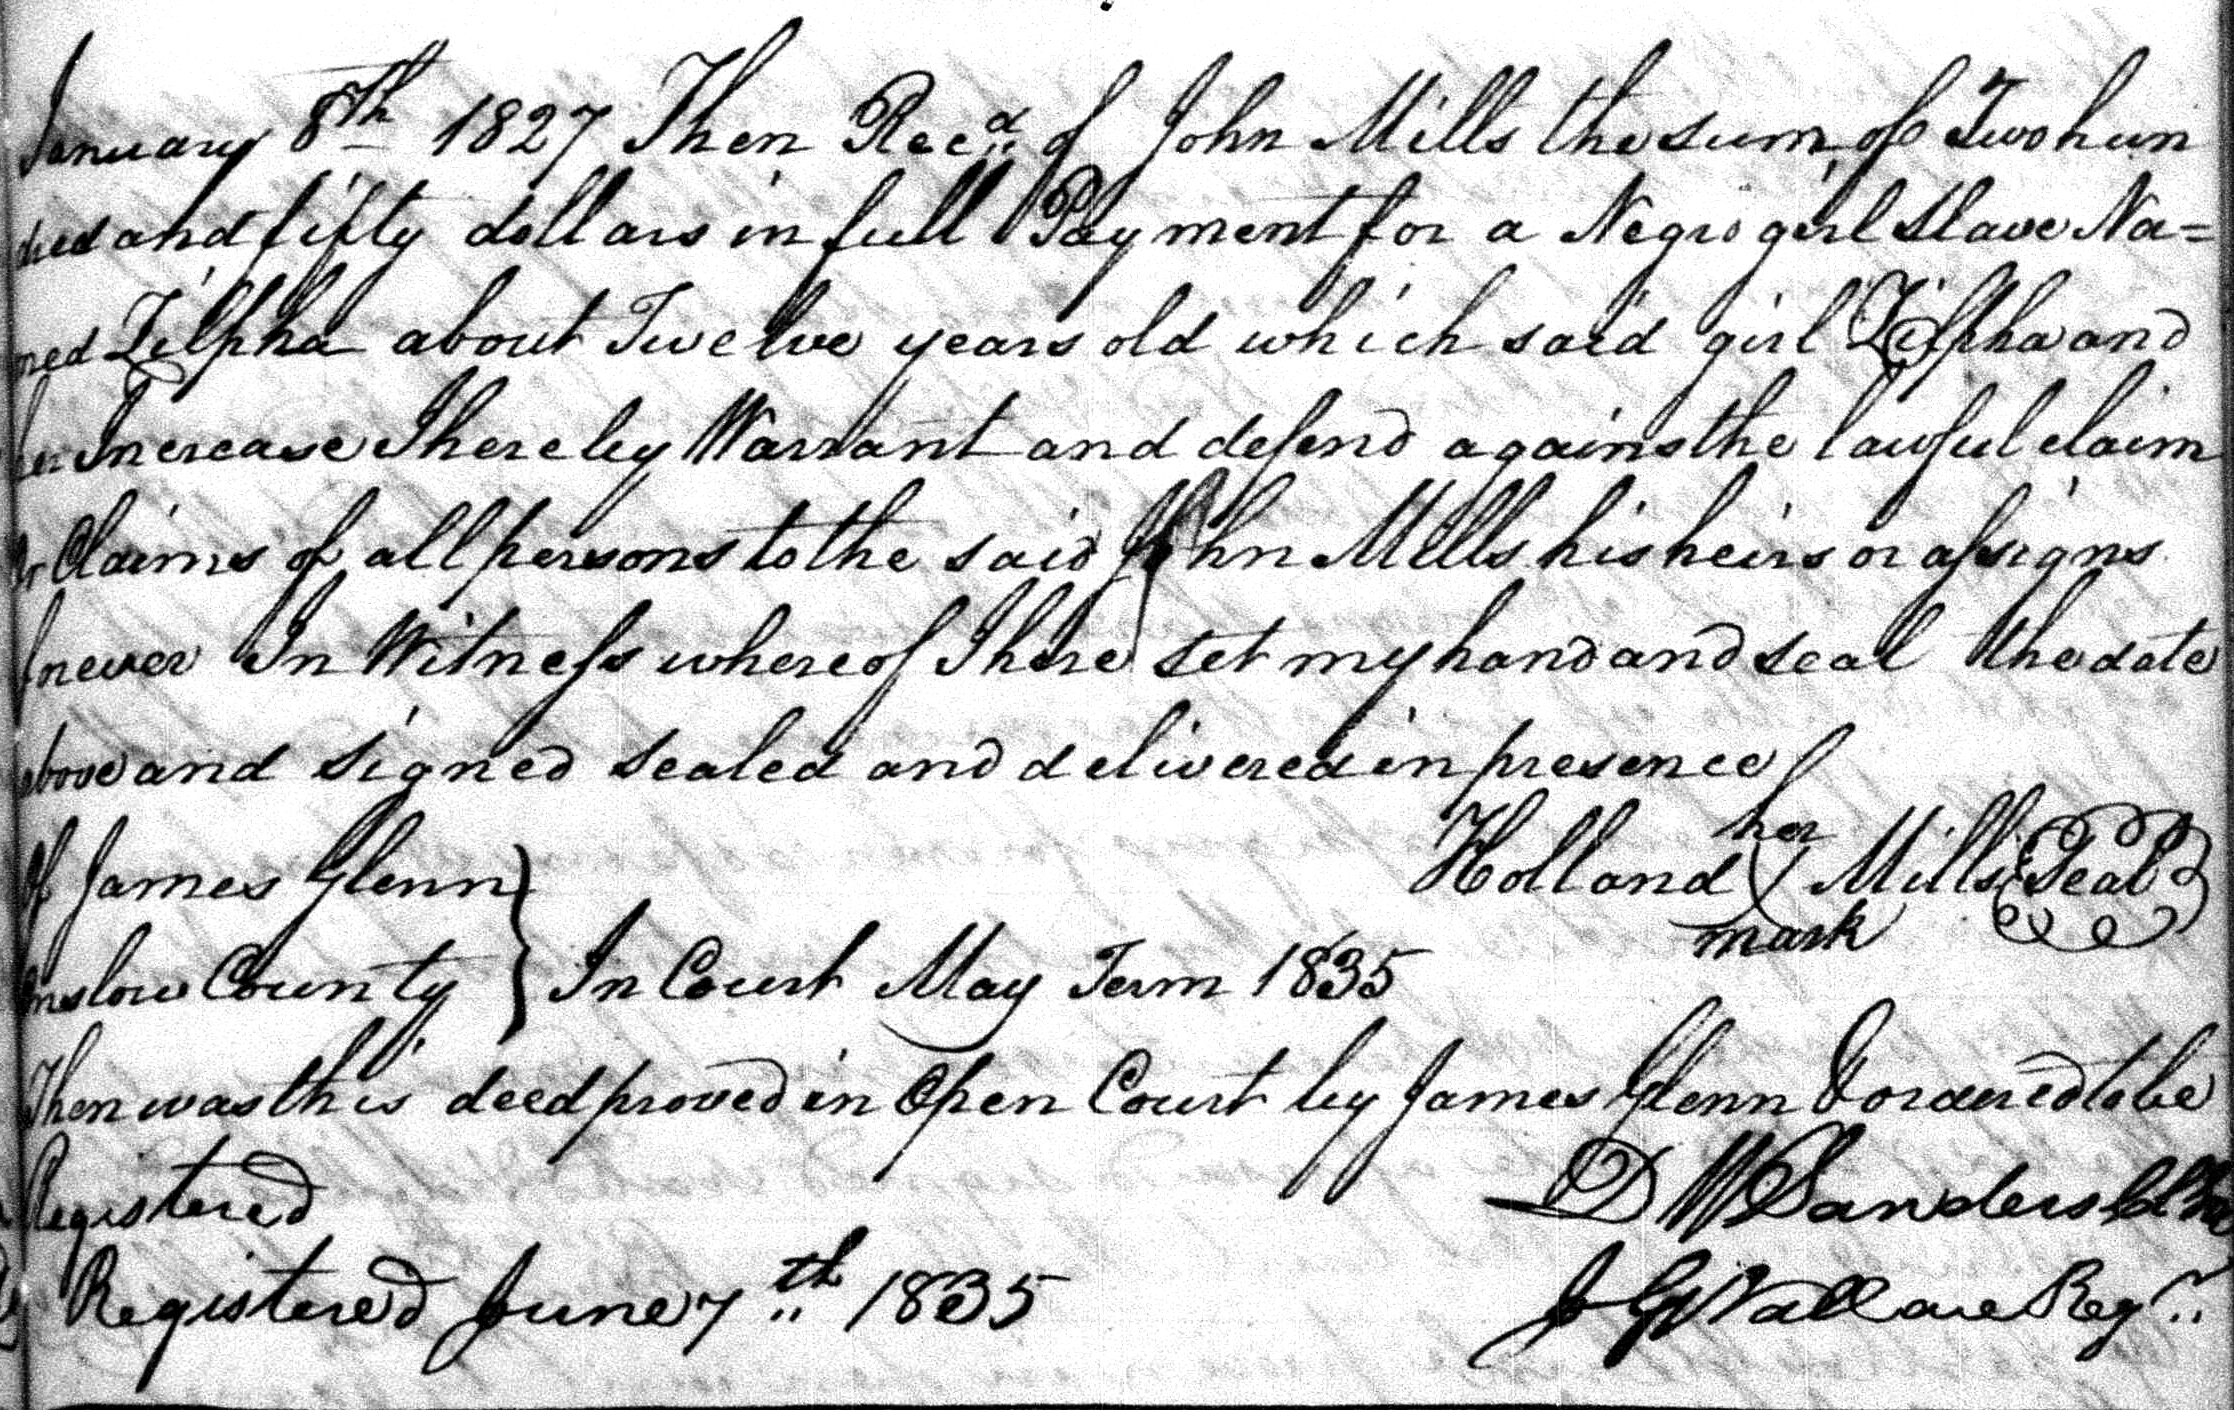 January 8th 1827 Then Recd. of John Mills the sum of Two hun
dred and fifty dollars in full Payment for a Negro girl Slave Na=
med Zilpha about Twelve years old which said girl Zilpha and
her Increase I hereby Warrant and defend against the lawful claim
or Claims of all persons to the said John Mills his heirs or assigns
forever In Witness whereof I here set my hand and seal the date
above and signed sealed and delivered in presence
of James Glenn
Holland her Mills Seal
mark
Onslow County } In Court May Term 1835
Then was this deed proved in Open Court by James Glenn & ordered to be
Registered
D W Sanders
Registered June 7th 1835
J G Wallace Regr.